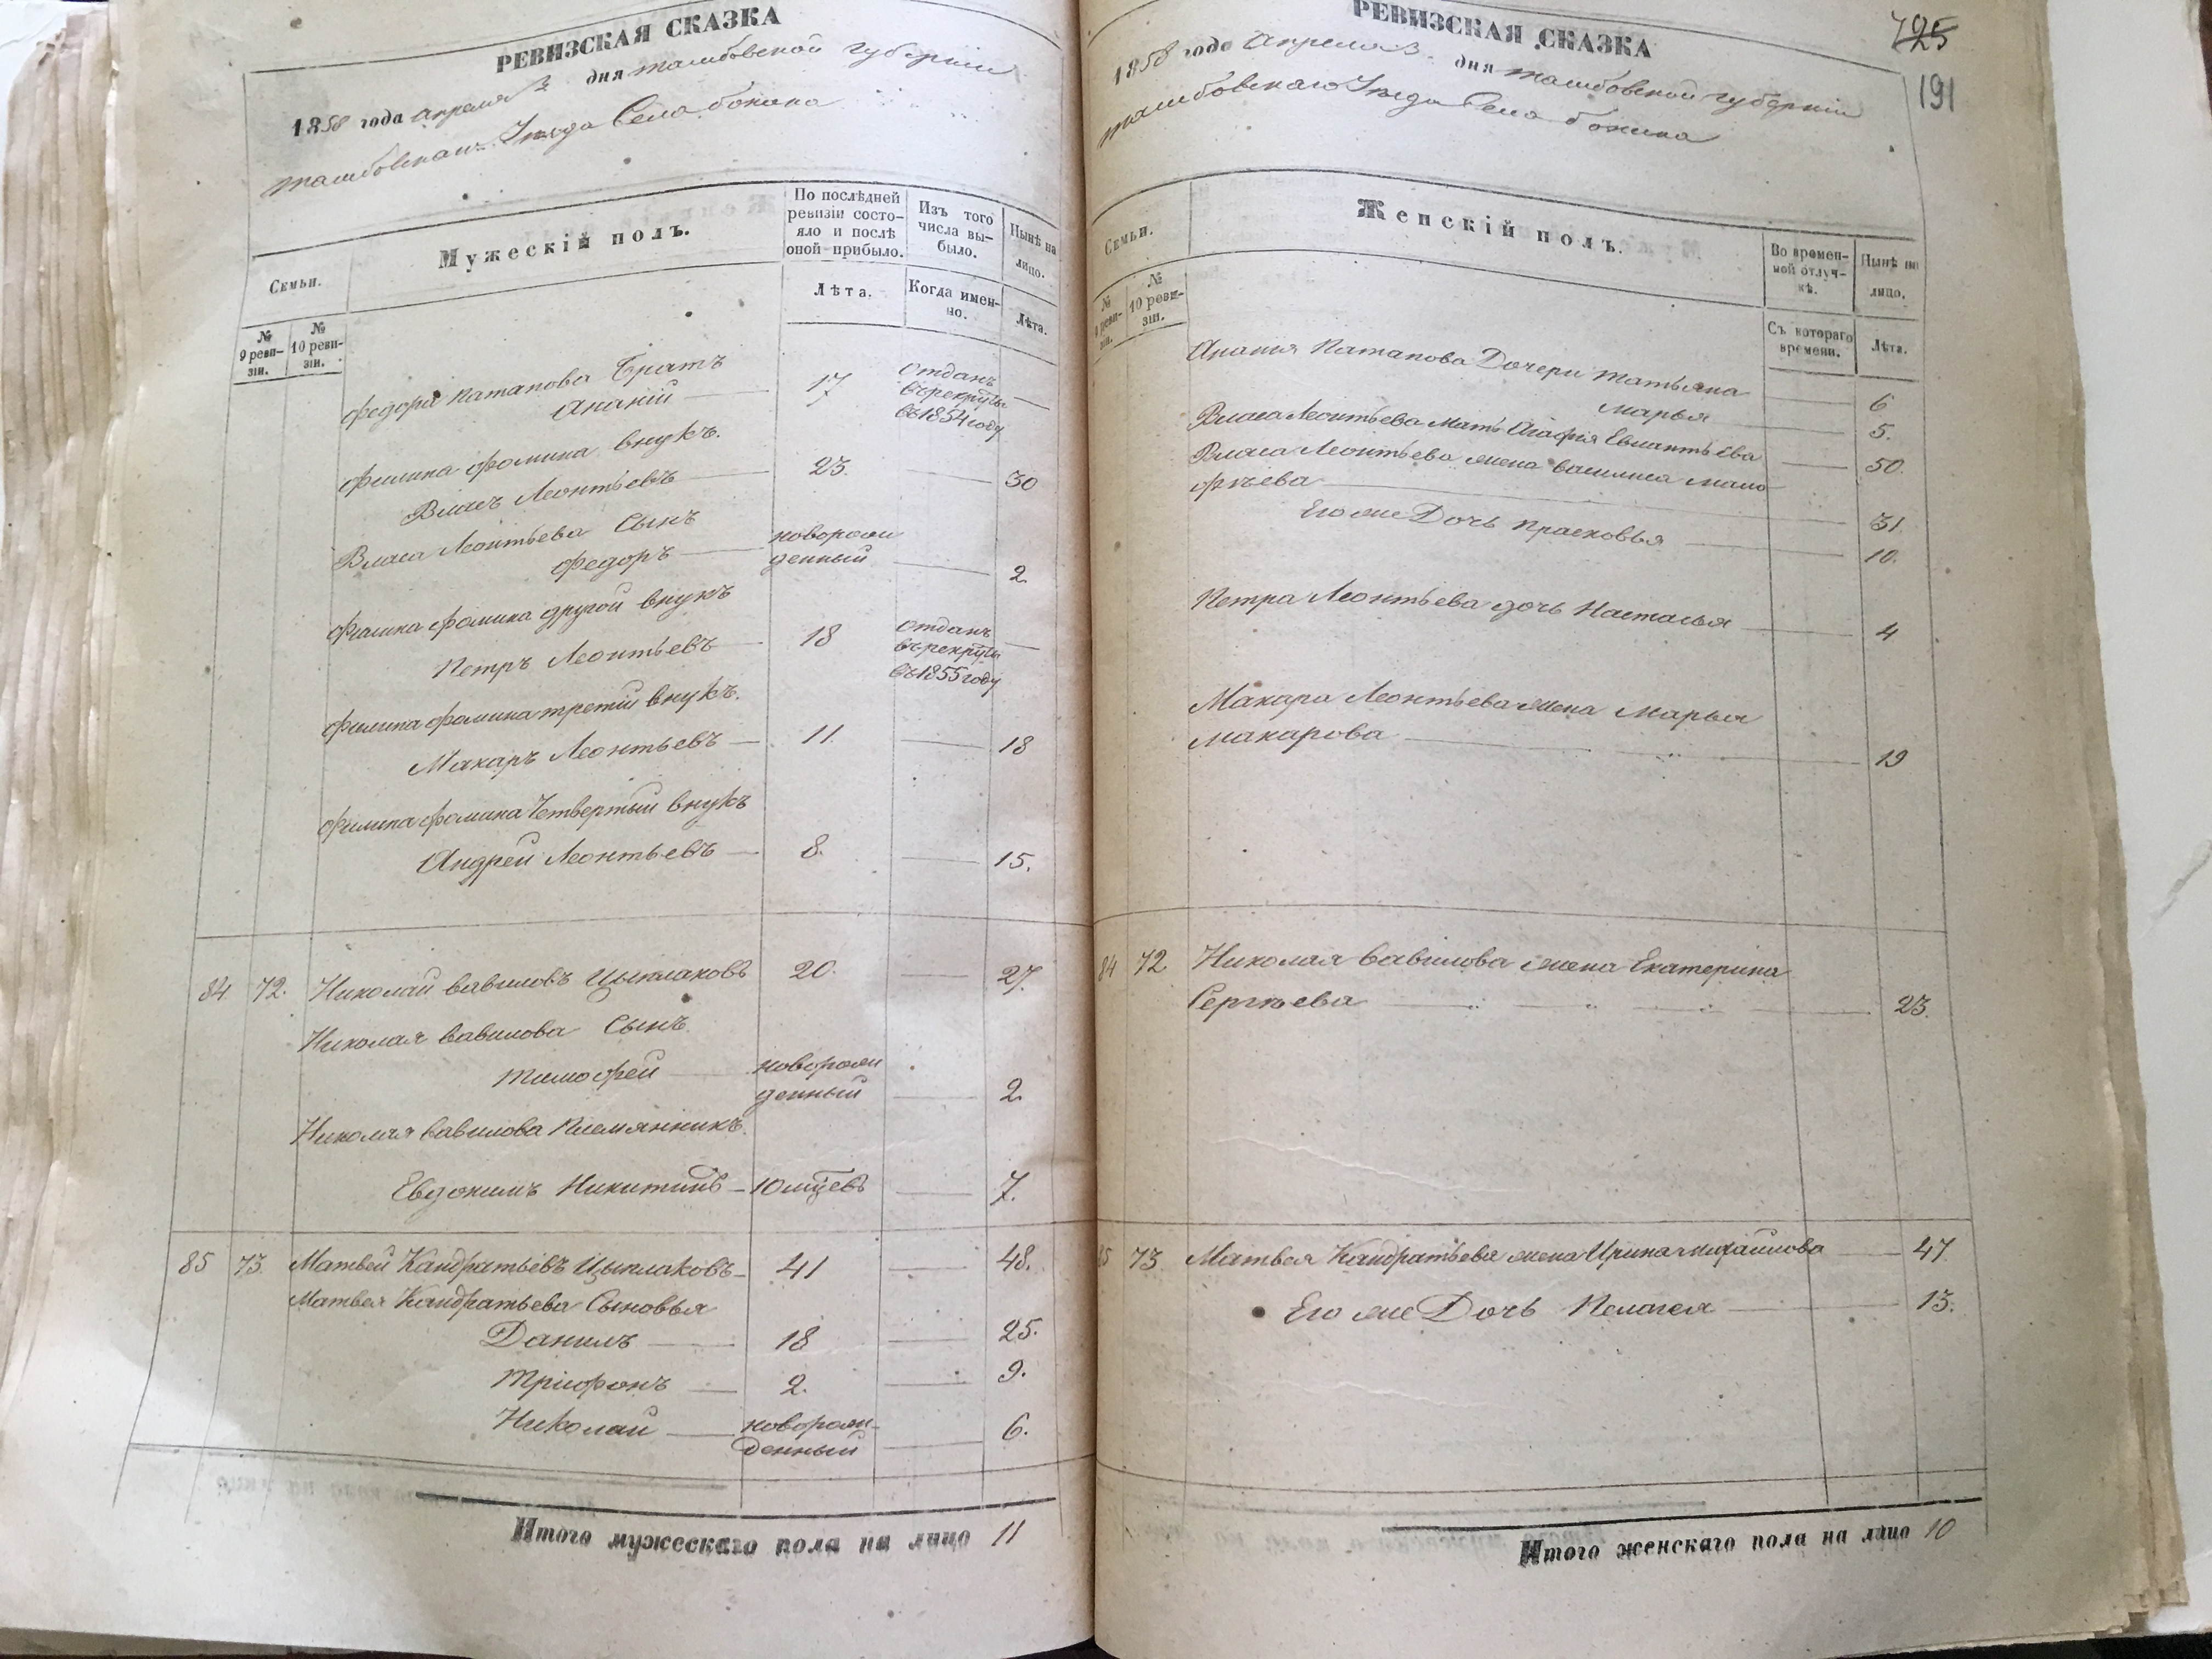 РЕВИЗСКАЯ СКАЗКА
1858 года апреля 3 дня тамбовской губернiи
тамбовскаго Уезда Села бокина
Семьи.
Мужескiй полъ.
По послѣдней ревизiи состо-
яло и послѣ
оной прибыло.
Изъ того
числа вы-
было.
Нынѣ на
лицо.
№
9 реви-
зiи.
№
10 реви-
зiи.
Лѣта.
Когда имен-
но.
Лѣта.
федора Катапова Братъ
Ананiй — 17 Отданъ
въ рекруты
въ 1854 году —
филипа фомина внукъ.
Власъ Леонтьевъ — 23. — 30
Власа Леонтьева Сынъ
федоръ — новорож
денный — 2.
филипа фомина другой внукъ
Петръ Леонтьевъ — 18 отданъ
въ рекруты
въ 1855 году —
филипа фомина третiй внукъ.
Макаръ Леонтьевъ — 11. — 18
филипа фомина Четвертый внукъ
Андрей Леонтьевъ — 8. — 15.
84 72. Николай вавиловъ Цыплаковъ 20. — 27.
Николая вавилова Сынъ
тимофей — новорож
денный — 2.
Николая вавилова Племянникъ.
Евдокимъ Никитинъ — 10 мцевъ — 7.
85 73. Матвей Кандратьевъ Цыплаковъ — 41 — 48.
Матвея Кандратьева Сыновья
Данилъ — 18 — 25.
трифонъ — 2. — 9.
Николай — новорож-
денный — 6.
Итого мужескаго пола на лицо 11
РЕВИЗСКАЯ СКАЗКА
725
191
1858 года апреля 3 дня тамбовской губернiи
тамбовскаго Уезда Села бокина
Семьи.
Женскiй полъ.
Во времен-
ной отлуч-
кѣ.
Нынѣ на
лицо.
№
9 реви-
зiи.
№
10 реви-
зiи.
Съ котораго
времени.
Лѣта.
Ананья Катапова Дочери татьяна — 6
марья — 5.
Власа Леонтьева мать Агафия Евлантьева — 50.
Власа Леонтьева жена василиса мало
фѣева — 31.
Его же Дочь Прасковья — 10.
Петра Леонтьева дочь Насталья — 4
Макара Леонтьева жена Марья
макарова — 19
84 72 Николая вавилова жена Екатерина
Сергѣева — 23.
85 73. Матвея Кандратьева жена Ирина михайлова — 47.
Его же Дочь Пелагея — 13.
Итого женскаго пола на лицо 10